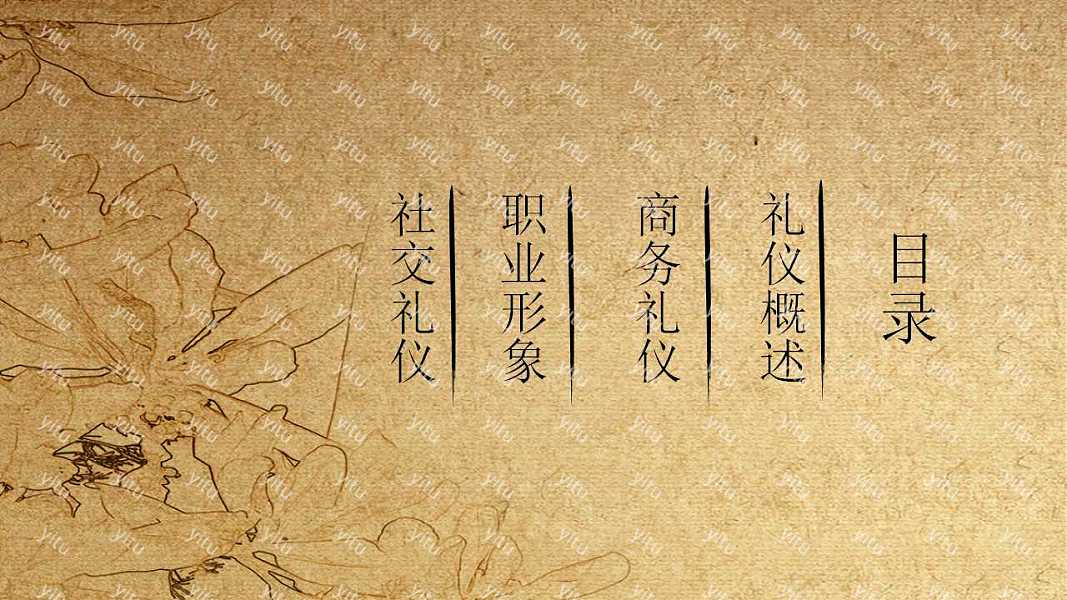 目录
礼仪概述
商务礼仪
职业形象
社交礼仪